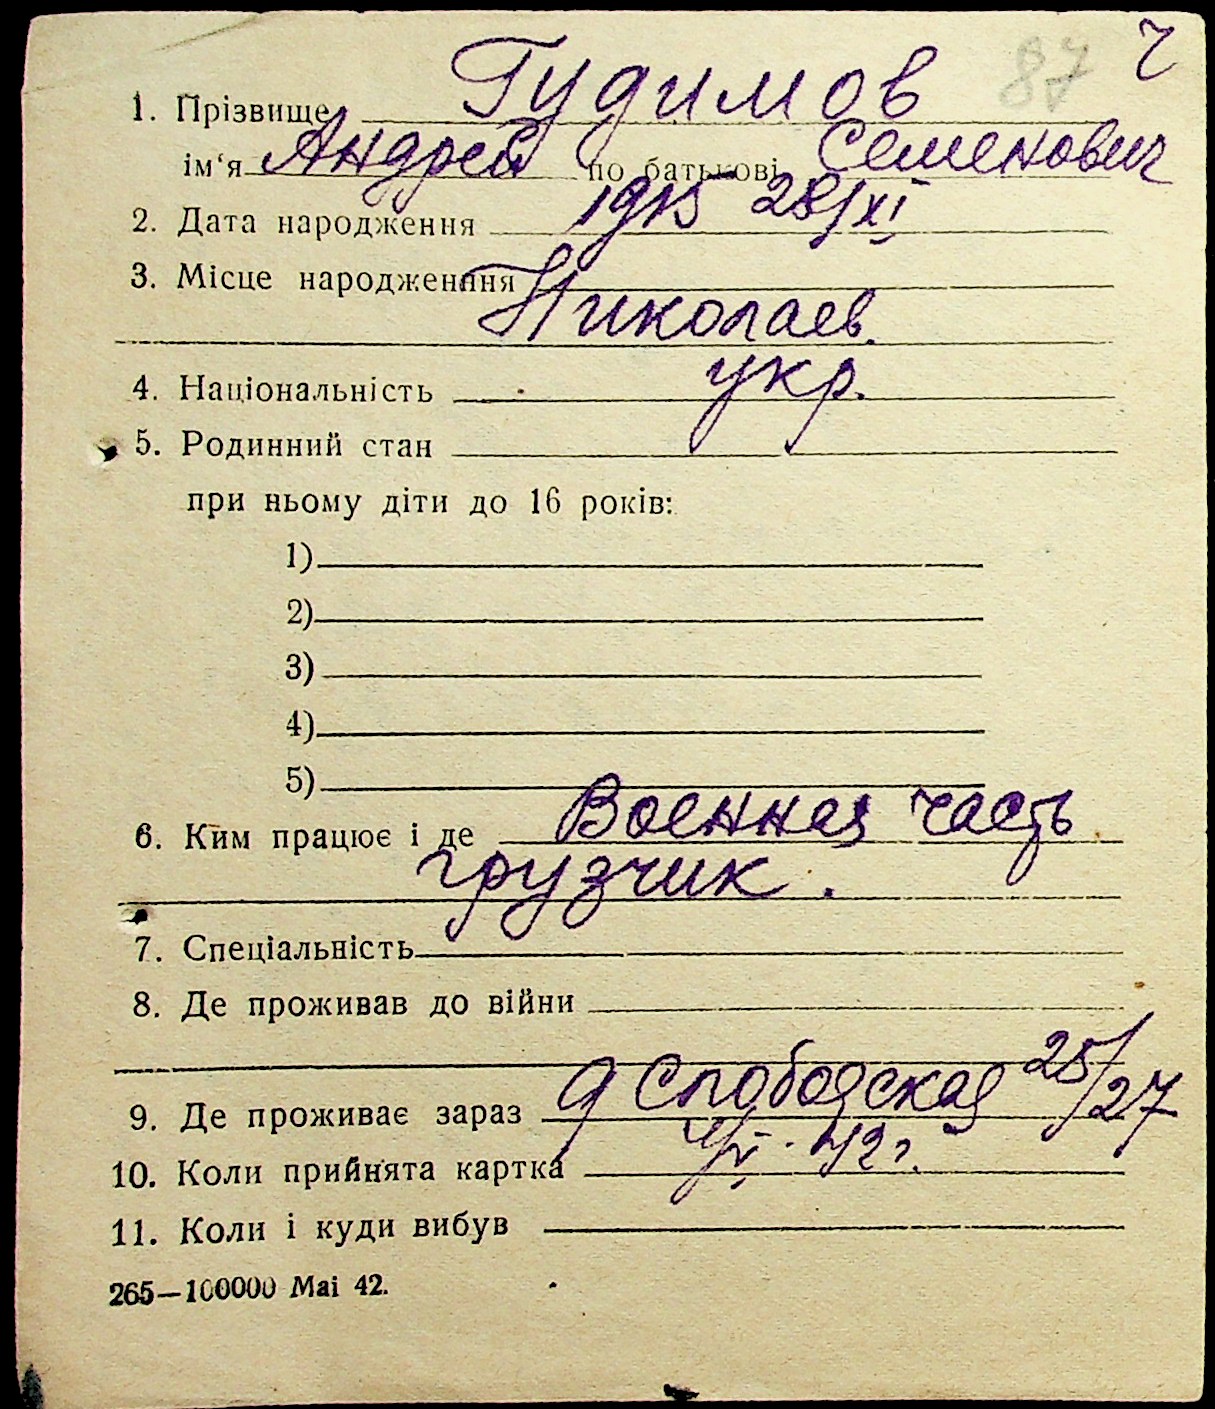 87 ч
1. Прізвище Гудимов
ім‘я Андрей по батькові Семенович
2. Дата народження 1915 28/XI
3. Місце народженння
Николаев.
4. Національність укр.
5. Родинний стан
при ньому діти до 16 років:
1)
2)
3)
4)
5)
6. Ким працює і де Военная часть
грузчик.
7. Спеціальність
8. Де проживав до війни
9. Де проживає зараз 9 Слободская 25/27
10. Коли прийнята картка 42г.
11. Коли і куди вибув
265—100000 Mai 42.